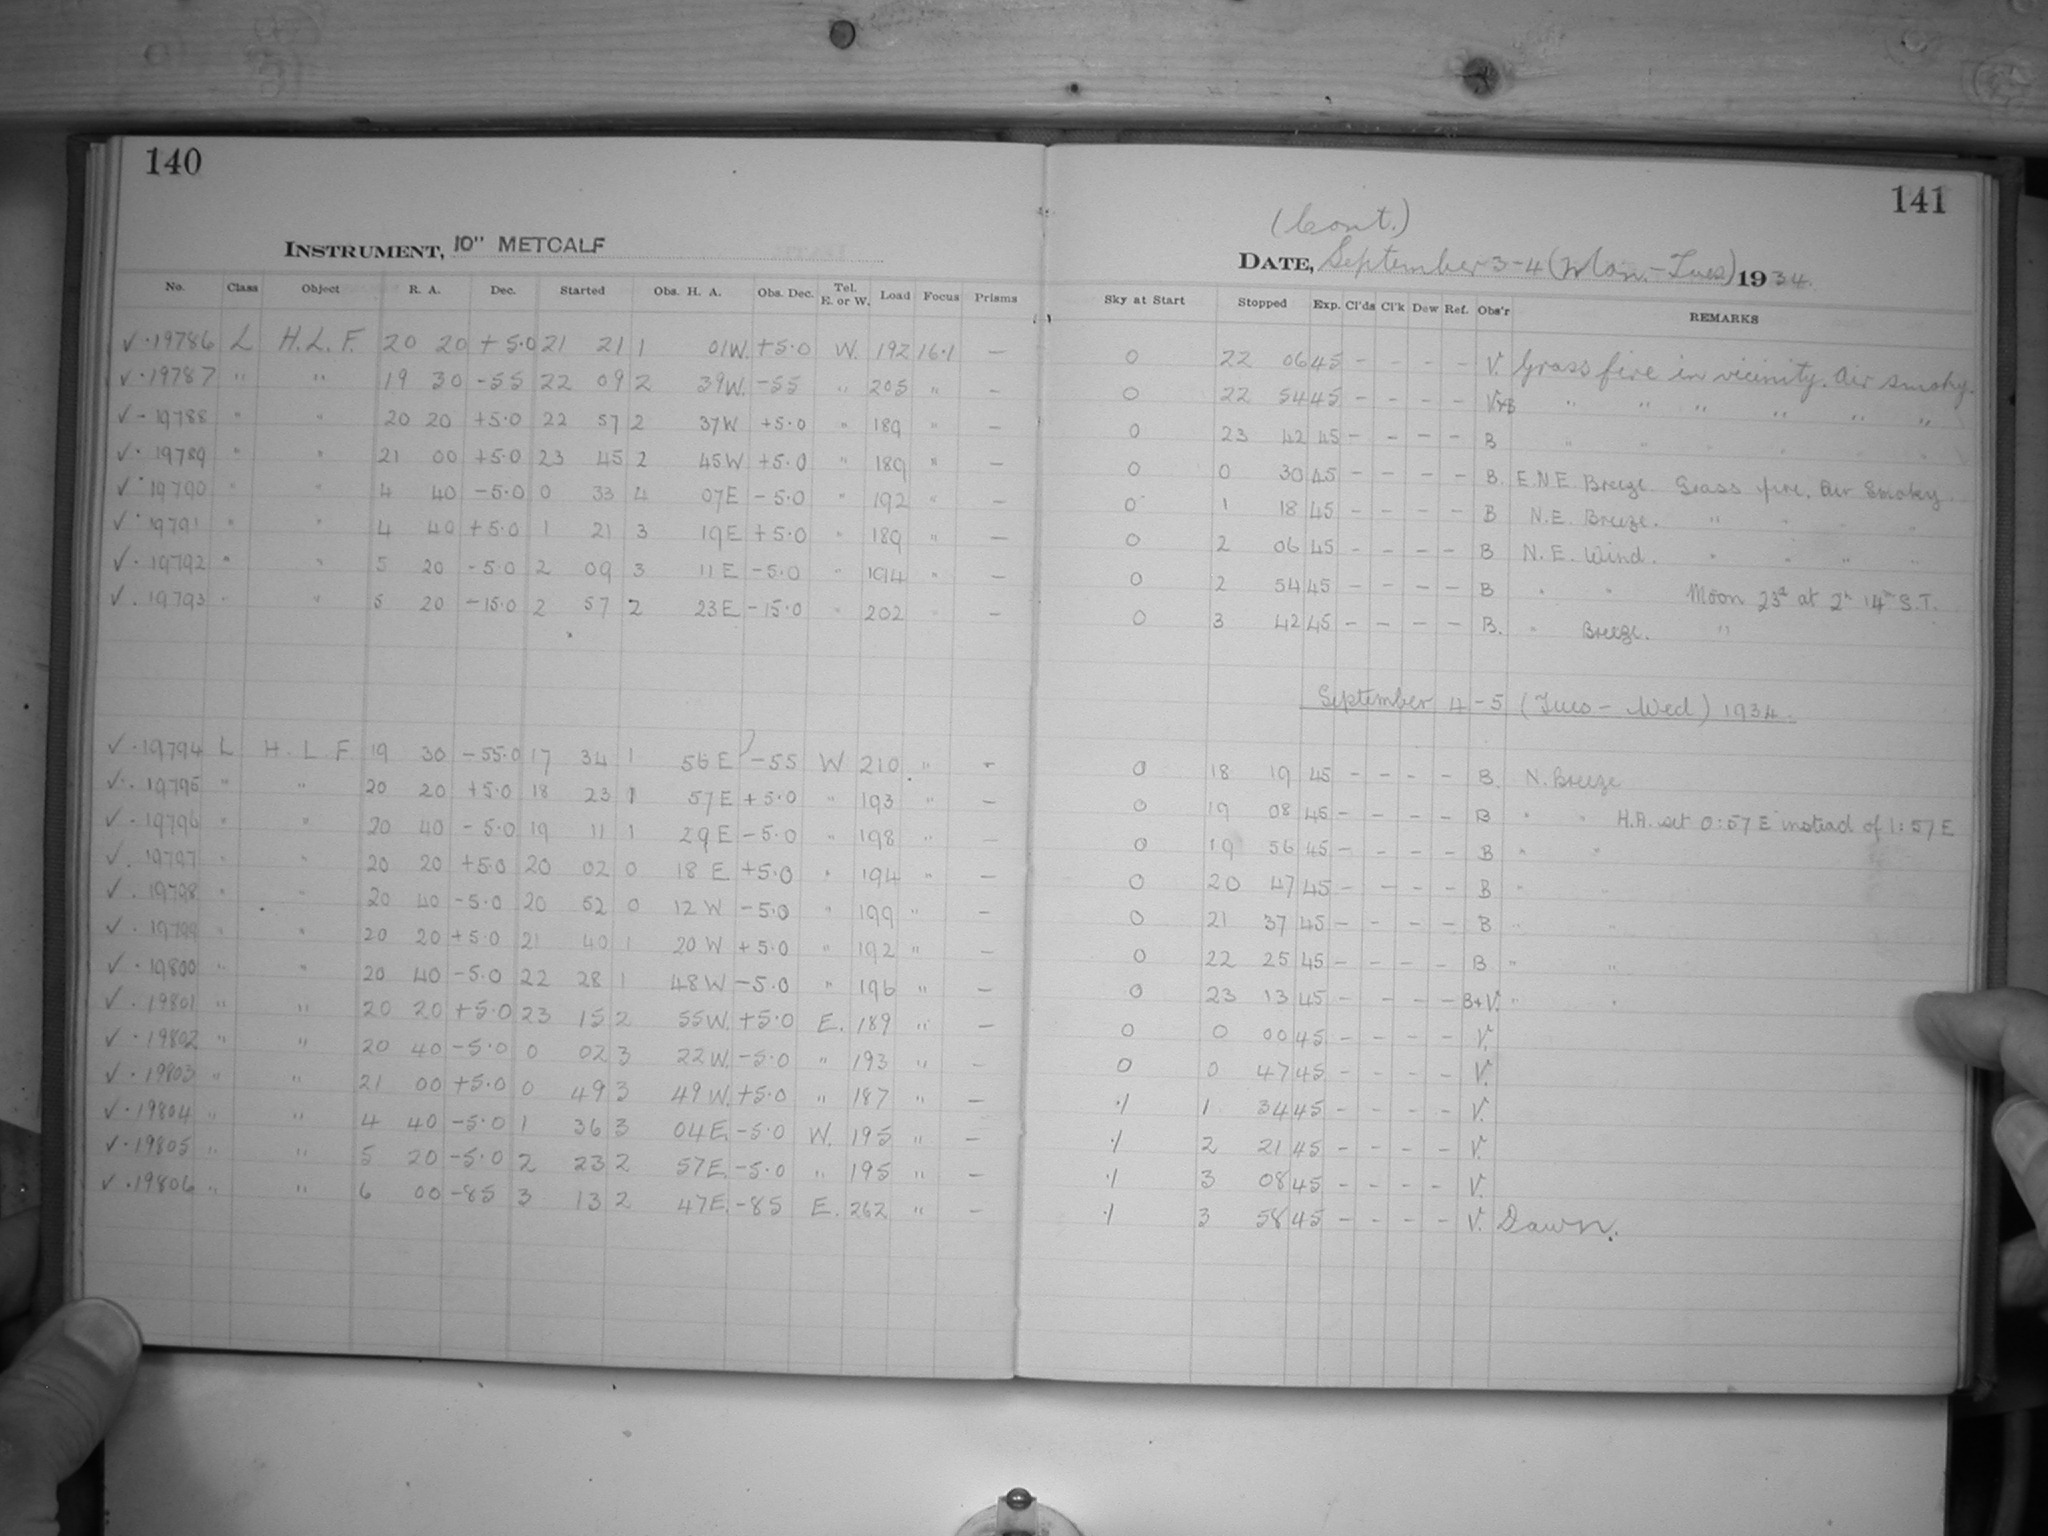 140
INSTRUMENT, 10" METCALF
No. Class Object R. A. Dec. Started Obs. H. A. Obs. Dec. Tel. E. or W. Load Focus Prisms
✓ · 19786 L H. L. F. 20 20 + 5.0 21 21 1 01 W. +5.0 W. 192 16.1 —
✓ · 19787 " " 19 30 -55 22 09 2 39 W. -55 " 205 " —
✓ - 19788 " " 20 20 +5.0 22 57 2 37 W +5.0 " 189 " —
✓ · 19789 " " 21 00 +5.0 23 45 2 45 W +5.0 " 189 " —
✓ · 19790 " " 4 40 -5.0 0 33 4 07 E -5.0 " 192 " —
✓ · 19791 " " 4 40 +5.0 1 21 3 19 E +5.0 " 189 " —
✓ · 19792 " " 5 20 -5.0 2 09 3 11 E -5.0 " 194 " —
✓ . 19793 " " 5 20 -15.0 2 57 2 23 E -15.0 " 202 —
✓ · 19794 L H. L F 19 30 -55.0 17 34 1 56 E -55 W 210 " -
✓ · 19795 " " 20 20 +5.0 18 23 1 57 E +5.0 " 193 " —
✓ · 19796 " " 20 40 -5.0 19 11 1 29 E -5.0 " 198 " —
✓ . 19797 " " 20 20 +5.0 20 02 0 18 E +5.0 " 194 " —
✓ . 19798 " " 20 40 -5.0 20 52 0 12 W -5.0 " 199 " —
✓ . 19799 " " 20 20 +5.0 21 40 1 20 W +5.0 " 192 " —
✓ · 19800 " " 20 40 -5.0 22 28 1 48 W -5.0 " 196 " —
✓ . 19801 " " 20 20 +5.0 23 15 2 55 W. +5.0 E. 189 " —
✓ · 19802 " " 20 40 -5.0 0 02 3 22 W. -5.0 " 193 " —
✓ · 19803 " " 21 00 +5.0 0 49 3 49 W. +5.0 " 187 " —
✓ · 19804 " " 4 40 -5.0 1 36 3 04 E. -5.0 W. 195 " —
✓ · 19805 " " 5 20 -5.0 2 23 2 57 E. -5.0 " 195 " —
✓ · 19806 " " 6 00 -85 3 13 2 47 E. -85 E. 262 " —
141
(Cont.)
DATE, September 3-4 (Mon. - Tues) 1934.
Sky at Start Stopped Exp. Cl'ds Cl'k Dew Ref. Obs'r REMARKS
0 22 06 45 - - - - V. Grass fire in vicinity. Air smoky.
0 22 54 45 - - - - V+B " " " " " "
0 23 42 45 - - - - B " " " " " "
0 0 30 45 - - - - B. E.N.E Breeze. Grass fire. Air Smoky.
0 1 18 45 - - - - B N.E. Breeze. " " " "
0 2 06 45 - - - - B N. E. Wind. " " " "
0 2 54 45 - - - - B " " Moon 23d at 2h 14m S.T.
0 3 42 45 - - - - B. " Breeze. "
September 4 - 5 (Tues - Wed) 1934.
0 18 19 45 - - - - B. N. Breeze
0 19 08 45 - - - - B " " H.A. set 0:57 E instead of 1:57 E
0 19 56 45 - - - - B " "
0 20 47 45 - - - - B " "
0 21 37 45 - - - - B " "
0 22 25 45 - - - - B " "
0 23 13 45 - - - - B+V. " "
0 0 00 45 - - - - V.
0 0 47 45 - - - - V.
·/ 1 34 45 - - - - V.
·/ 2 21 45 - - - - V.
·/ 3 08 45 - - - - V.
·/ 3 58 45 - - - - V. Dawn.